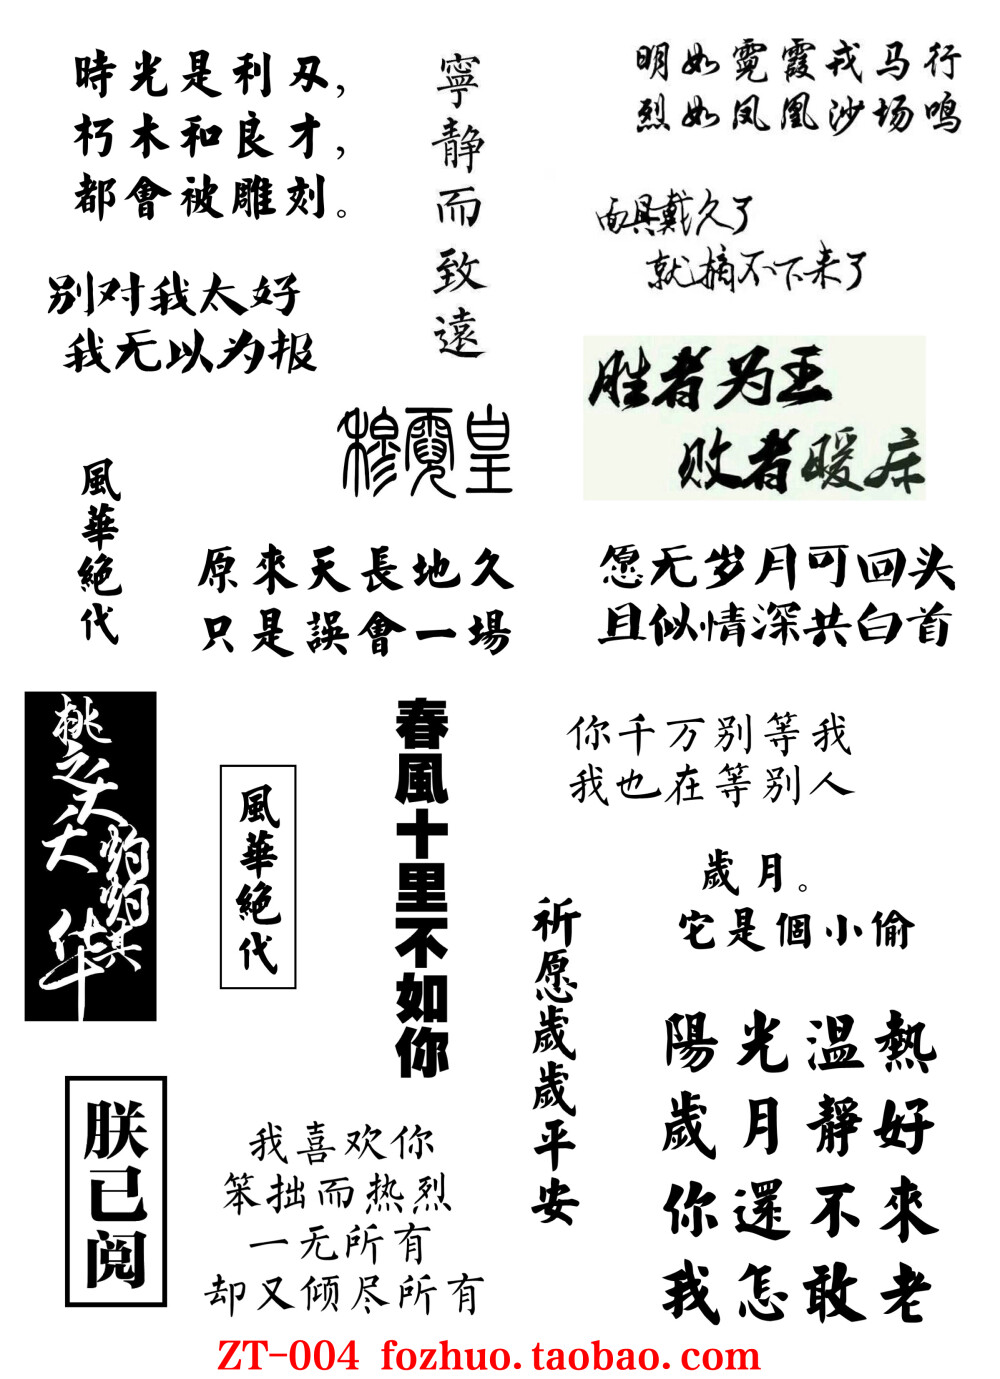 時光是利刃，
朽木和良才，
都會被雕刻。
寧靜而致遠
明如霓霞戎马行
烈如凤凰沙场鸣
面具戴久了
就摘不下来了
别对我太好
我无以为报
胜者为王
败者暖床
穆霓皇
風華絕代
原來天長地久
只是誤會一場
愿无岁月可回头
且似情深共白首
桃之夭夭
灼灼其华
風華絕代
春風十里不如你
你千万别等我
我也在等别人
歲月。
它是個小偷
祈愿歲歲平安
陽光溫熱
歲月靜好
你還不來
我怎敢老
朕已阅
我喜欢你
笨拙而热烈
一无所有
却又倾尽所有
ZT-004 fozhuo.taobao.com